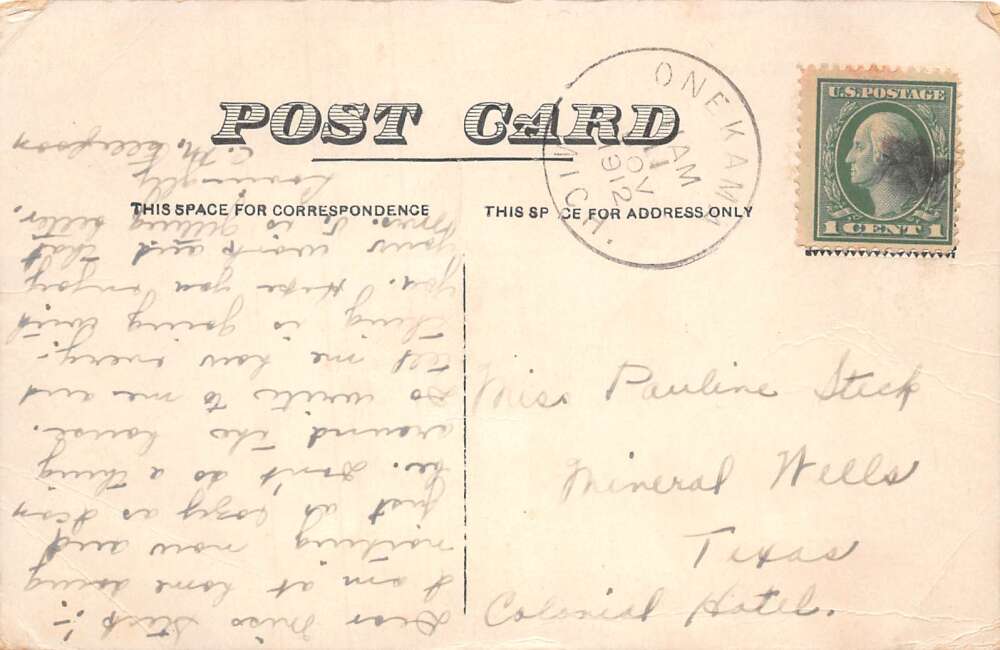 POST CARD
THIS SPACE FOR CORRESPONDENCE
THIS SP CE FOR ADDRESS ONLY
ONEKAMA
AM
NOV
1912
MICH.
U.S. POSTAGE
1 CENT 1
Miss Pauline Steck
Mineral Wells
Texas
Colonial Hotel.
Dear Miss Steck:-
I am at home doing
nothing now and
just as lazy as I can
be. Don't do a thing
around the house.
So write to me and
tell me how every-
thing is going with
you. Hope you enjoy
your work and that
Mrs. S. is getting better.
Lovingly
C. M.